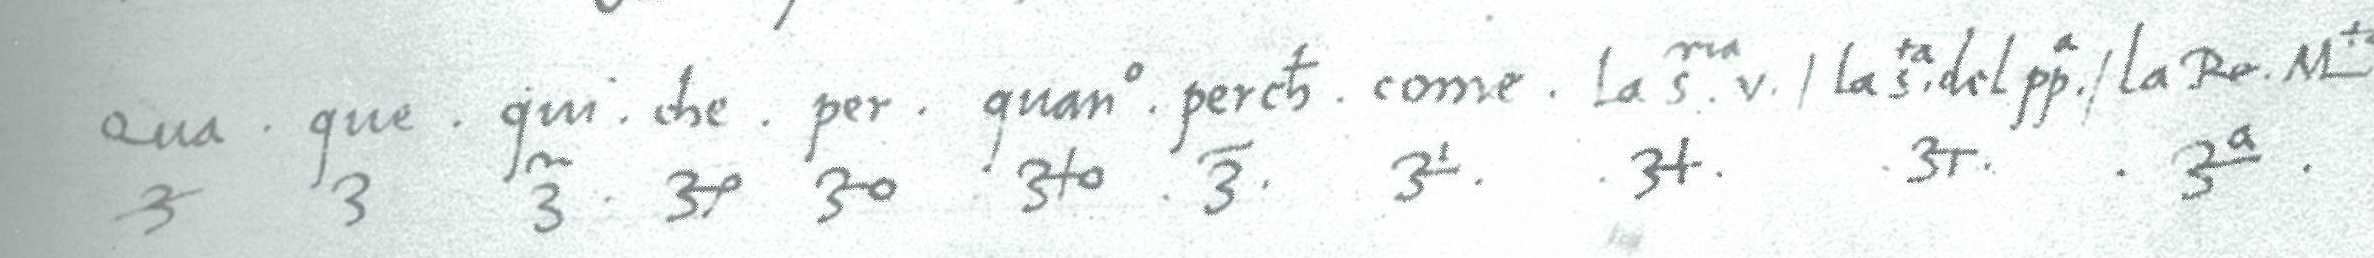 Qua . que . qui . che . per . quan° . perch . come . la s.ria v. / la s.ta del pp.a / la Re. M.ta
3 3 3 . 3 3o 3+o . 3 . 3 . . 3+ . . 3 . . 3a .